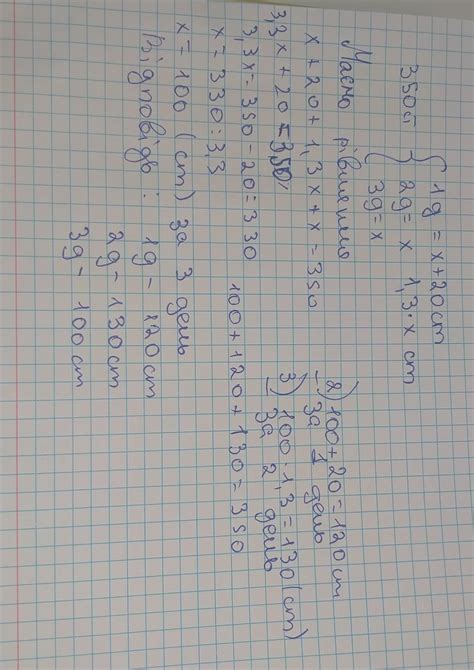 350ст { 1д = x+20 ст
2д = x 1,3 · x ст
3д = x
Маємо рівняння
x + 20 + 1,3x + x = 350
3,3x + 20 = 350
3,3x = 350 - 20 = 330
x = 330 : 3,3
x = 100 (ст) за 3 день
Відповідь: 1д - 120 ст
2д - 130 ст
3д - 100 ст
2) 100 + 20 = 120 ст
за 1 день
3) 100 · 1,3 = 130 (ст)
за 2 день
100 + 120 + 130 = 350